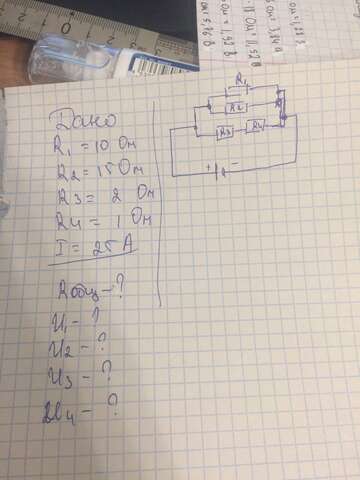 Дано
R1 = 10 Ом
R2 = 15 Ом
R3 = 2 Ом
R4 = 1 Ом
I = 25 А
Rобщ - ?
U1 - ?
U2 - ?
U3 - ?
U4 - ?
R1
R2
R3
R4
+ -